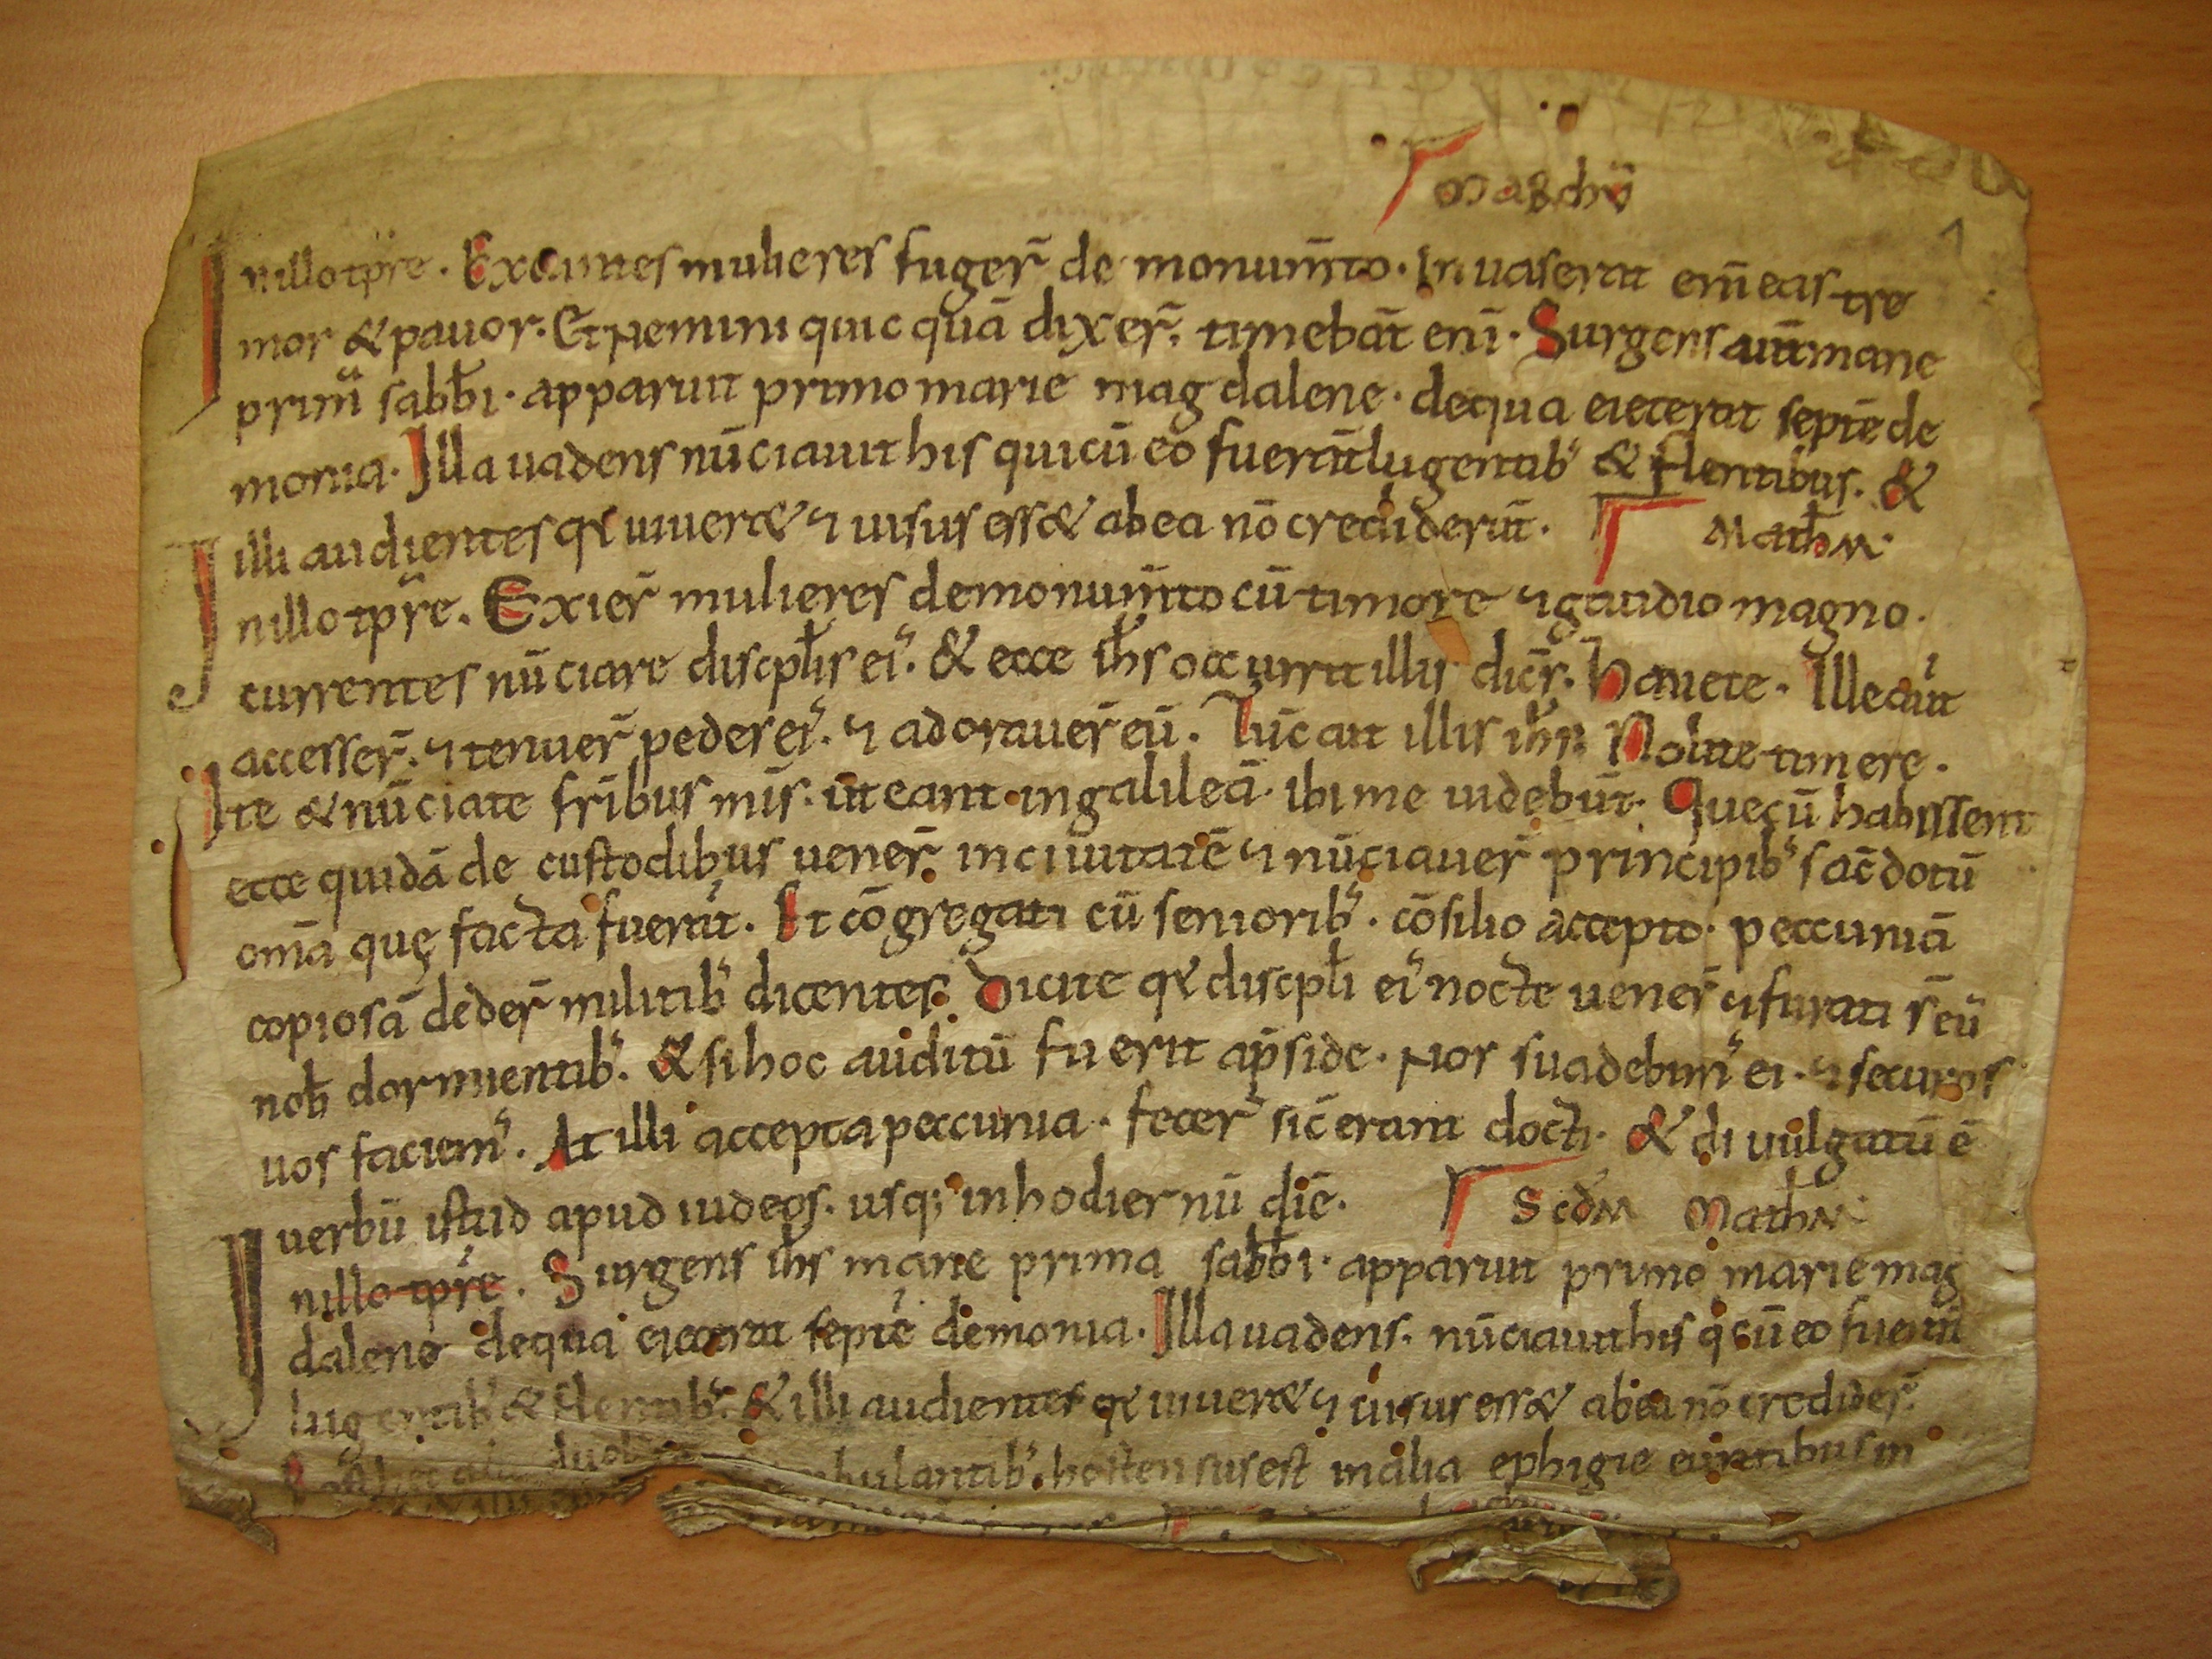 Mathm̄
1
In illo tp̄re. Exeuntes mulieres fuger̄ de monum̄to. Inuaserat enī eas tre
mor & pauor. Et nemini quicquā dixer̄, timebāt enī. Surgens aūt mane
prima sabb̄i. apparuit primo marie magdalene. de qua eiecerat septē de
monia. Illa uadens nūciauit his qui cū eo fuerāt lugentib; & flentibus. &
illi audientes qđ uiuer& ⁊ uisus ess& ab ea nō crediderūt. Mathm.
In illo tp̄re. Exier̄ mulieres de monum̄to cū timore ⁊ gaudio magno.
currentes nūciare discipl̄is ei'. & ecce ih̄s occurrit illis dicēs. hauete. Ille aūt
accesser̄. ⁊ tenuer̄ pedes ei'. ⁊ adorauer̄ eū. Tūc ait illis ih̄s. Nolite timere.
Ite & nūciate fr̄ibus mīs. ūt eant in galileā. ibi me uidebūt. Que cū habissent
ecce quidā de custodibus uener̄ in ciuitatē ⁊ nūciauer̄ principib; sac̄dotū
om̄a quę facta fuerāt. Et cōgregati cū seniorib;. cōsilio accepto. peccuniā
copiosā dēder̄ militib; dicentes. Dicite qđ discipl̄i ei' nocte uener̄ ⁊ furati s̄ eū
nob̄ dormientib;. & si hoc auditū fuerit ap̄side. Nos suadebim' ei. ⁊ securos
uos faciem'. At illi accepta peccunia. fecer̄ sic̄ erant docti. & diuulgatū ē
uerbū istud apud iudeos. usq; in hodiernū diē. Scđm Mathm.
In illo tp̄re. Surgens ih̄s mane prima sabb̄i. apparuit primo marie mag
dalene de qua eiecerat septē demonia. Illa uadens. nūciauit his q̄ cū eo fuerāt
lugentib; & flentib;. & illi audientes qđ uiuer& ⁊ uisus ess& ab ea nō credider̄.
ambulantib;. hostensus est in alia ephigie euntibus in